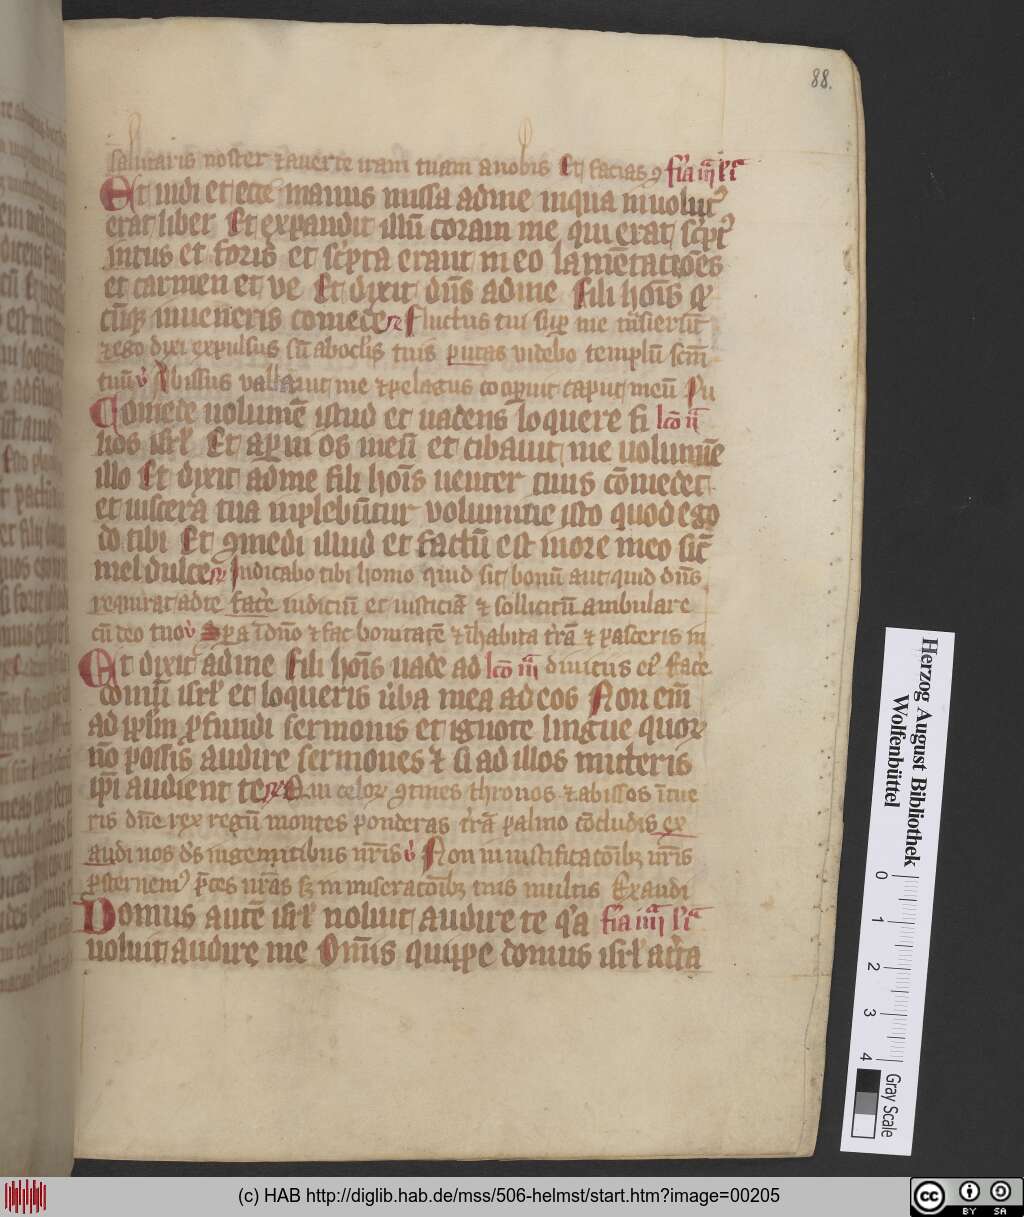 88.
salutaris noster ⁊ auerte iram tuam a nobis Et facias ꝯ fīa iii lc̄a
Et uidi et ecce manus missa ad me in qua inuolut᷒
erat liber Et expandit illū coram me qui erat sc͛pt᷒
intus et foris et sc͛pta erant in eo lamētatiōes
et carmen et ve Et dixit dn̄s ad me fili hoīs qͥd
cūqꝫ inueneris comede ꝶ Fluctus tui suꝑ me tͣnsierūt
⁊ ego dixi expulsus sū ab oc̄lis tuis putas videbo templū scm̄
tuū ꝟ Abissus vallauit me ⁊ pelagus cooꝑuit caput meū Pu
Comede uolumē istud et uadens loquere fi lcō ii
liis isrł Et aꝑui os meū et cibauit me uolumīe
illo Et dixit ad me fili hoīs uenter tuus cōmedet
et uiscera tua inplebūtur volumine isto quod ego
do tibi Et ꝯmedi illud et factū est in ore meo sic̄
mel dulce ꝶ Indicabo tibi homo quid sit bonū aut quid dn̄s
requirat a te fac̄e iudiciū et iusticiā ⁊ sollicitū ambulare
cū deo tuo ꝟ Spa ī dn̄o ⁊ fac bonitatē ⁊ īhabita tr̄ā ⁊ pasceris in
Et dixit ad me fili hoīs uade ad lcō iii diuitiis eī fac̄e
domū isrł et loqueris ūba mea ad eos Non eīm
ad ppl̄m ꝓfundi sermonis et ignote lingue quoꝝ
nō possis audire sermones ⁊ si ad illos mitteris
ip̄i audient te ꝶ Qui celoꝝ ꝯtines thronos ⁊ abissos ītue
ris dn̄e rex regū montes ponderas tr̄ā palmo cōcludis ex
audi nos dn̄s in gemitibus nr̄is ꝟ Non in iustificatōibꝫ nr̄is
ꝓsternim᷒ p̄ces nr̄as sꝫ in miseratōibꝫ tuis multis Exaudi
Domus autē isrł noluit audire te qͥa fīa iiii lc̄a
noluit audire me Omīs quippe domus isrł att͛ta
Herzog August Bibliothek
Wolfenbüttel
0 1 2 3 4
Gray Scale
(c) HAB http://diglib.hab.de/mss/506-helmst/start.htm?image=00205
cc BY SA